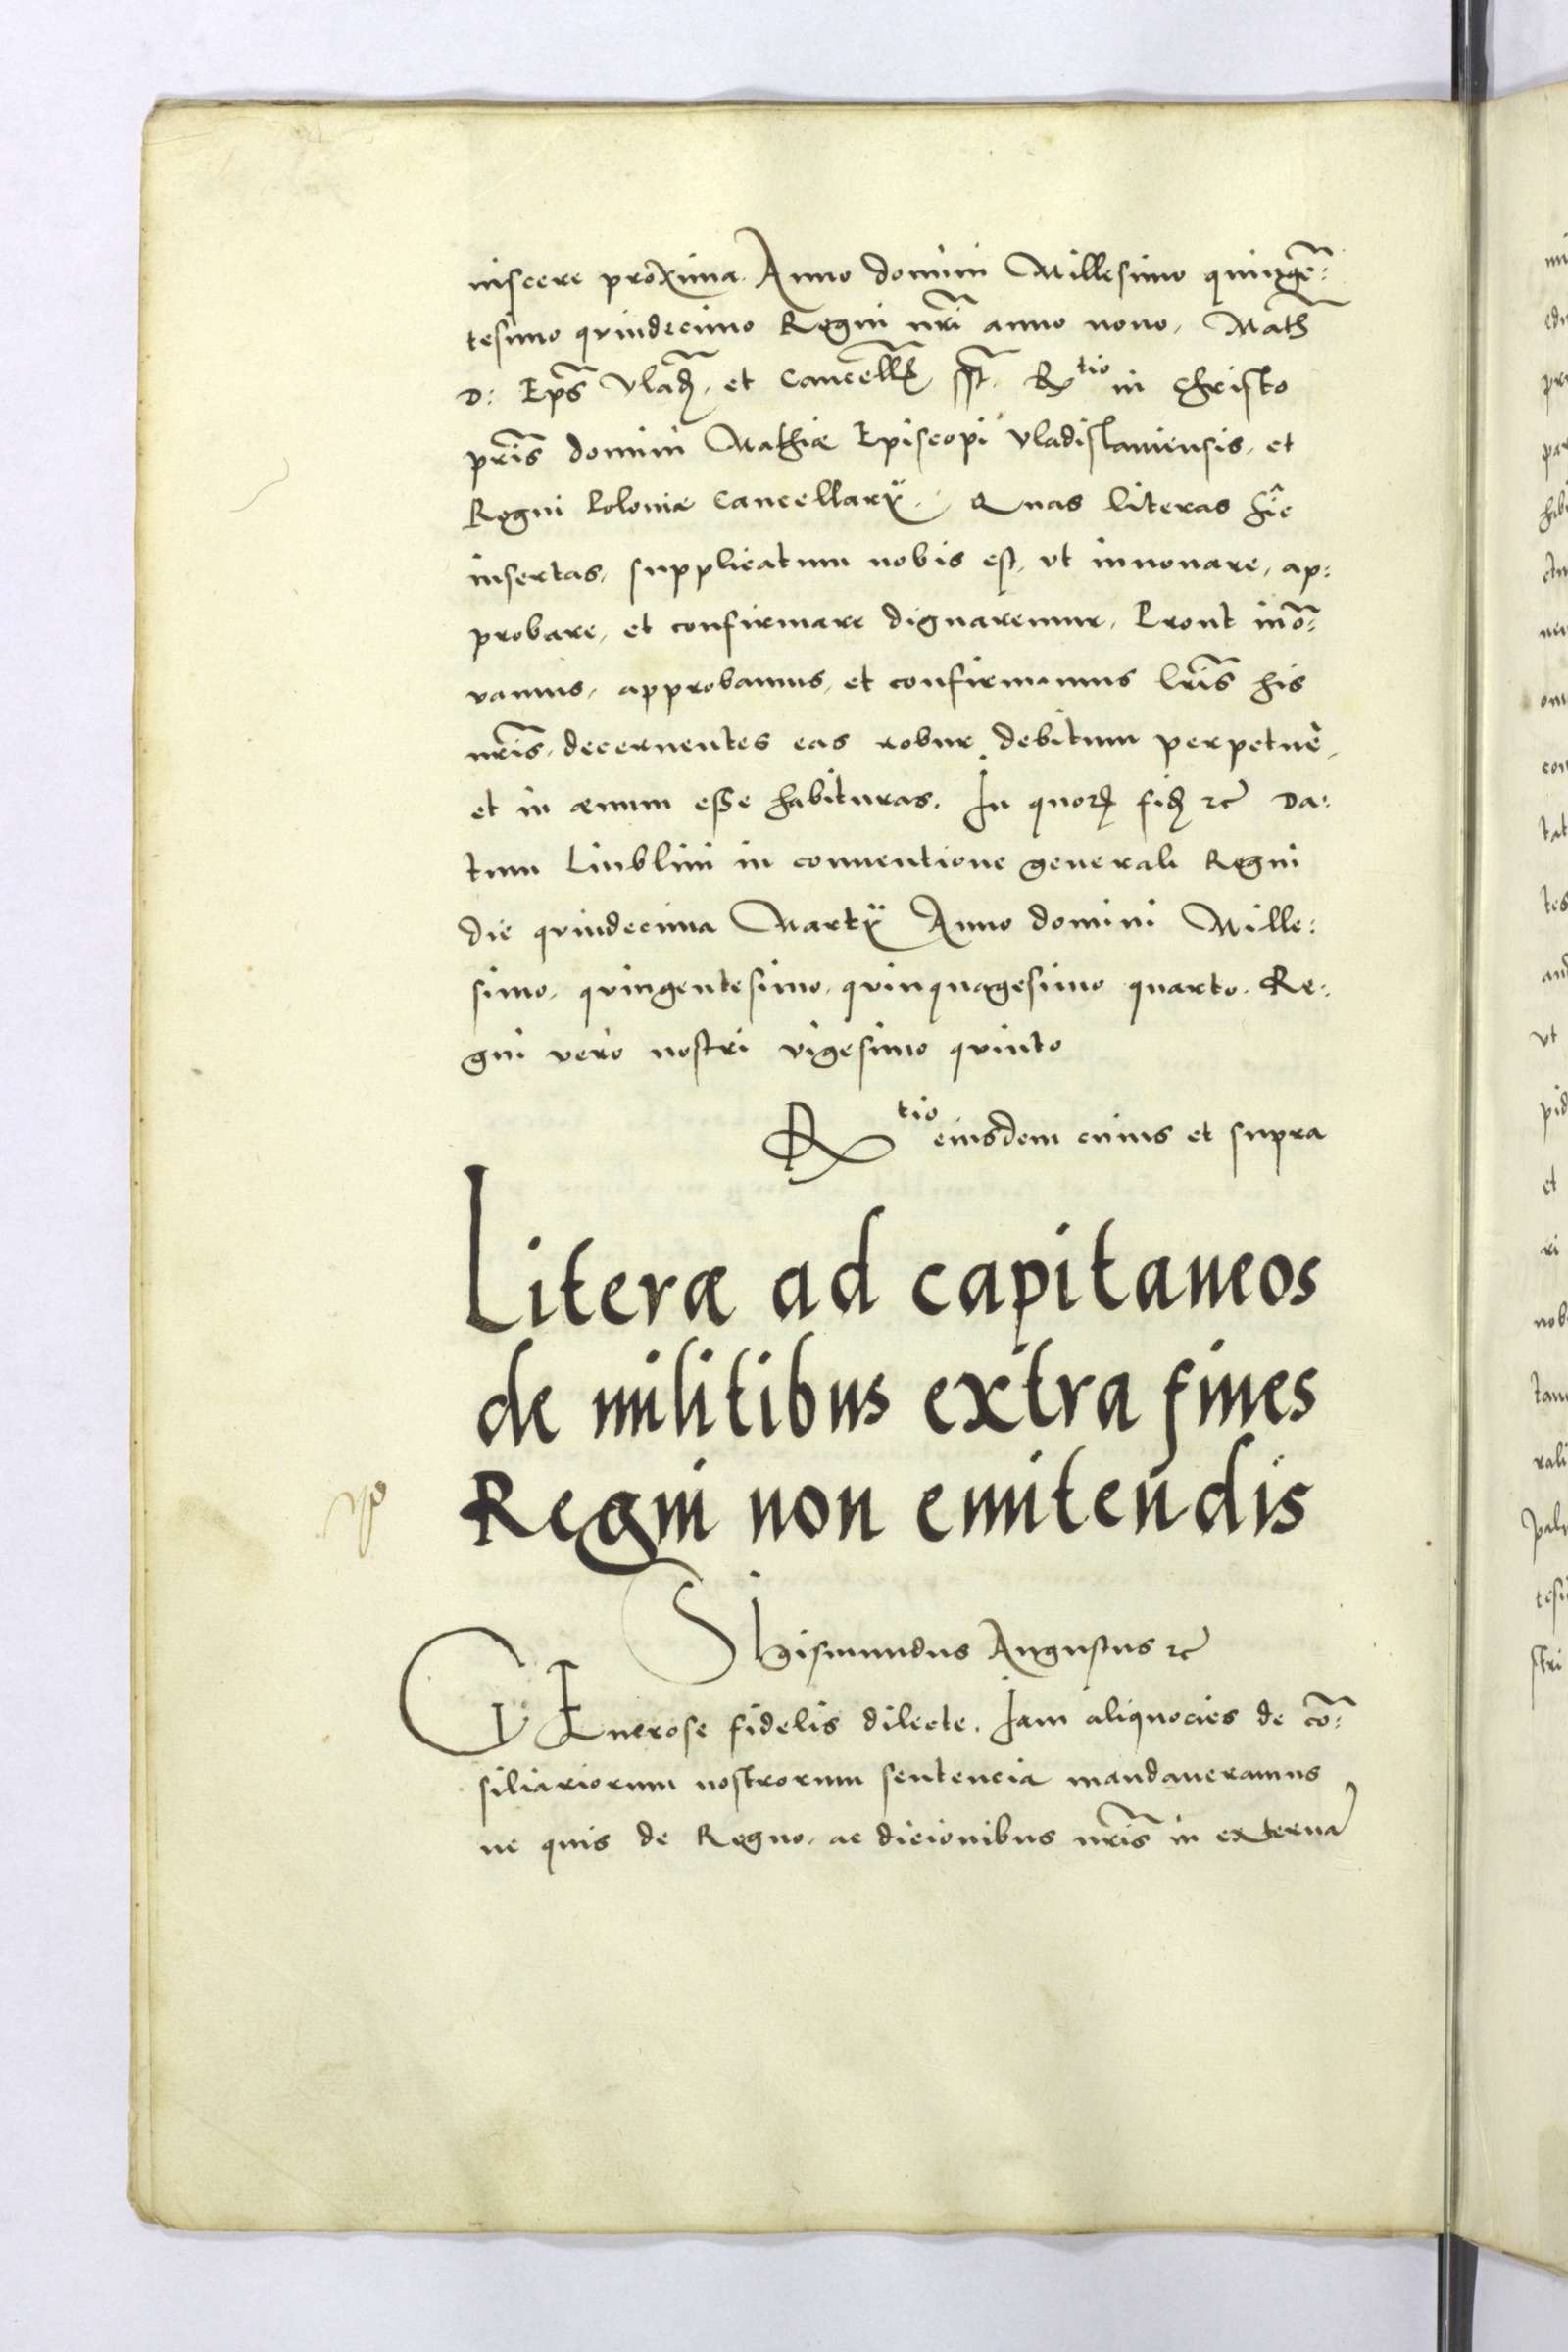 niscere proxima. Anno domini Millesimo quingẽ:
tesimo quindecimo Regni nr̃i anno nono, Math̃
D: Ep̃s Vlad, et Cancell̃ sst. R tio in Christo
pr̃is domini Mathiæ Episcopi Vladislauiensis, et
Regni Poloniæ Cancellarÿ. Quas literas hîc
insertas, supplicatum nobis est, vt innouare, ap:
probare, et confirmare dignaremur, Prout inõ:
vamus, approbamus, et confirmamus lr̃is his
nr̃is, decernentes eas robur debitum perpetuè,
et in æuum esse habituras. In quorũ fid̃ etc̃ Da:
tum Liublini in conuentione generali Regni
die quindecima Martÿ Anno domini Mille:
simo, quingentesimo, quinquagesimo quarto. Re:
gni vero nostri vigesimo quinto
R tio eiusdem cuius et supra
Literæ ad capitaneos
de militibus extra fines
Regni non emitendis
Sigismundus Augustus etc̃
GEnerose fidelis dilecte. Iam aliquocies de cõ:
siliariorum nostrorum sentencia mandaueramus
ne quis de Regno, ac dicionibus nr̃is in externa